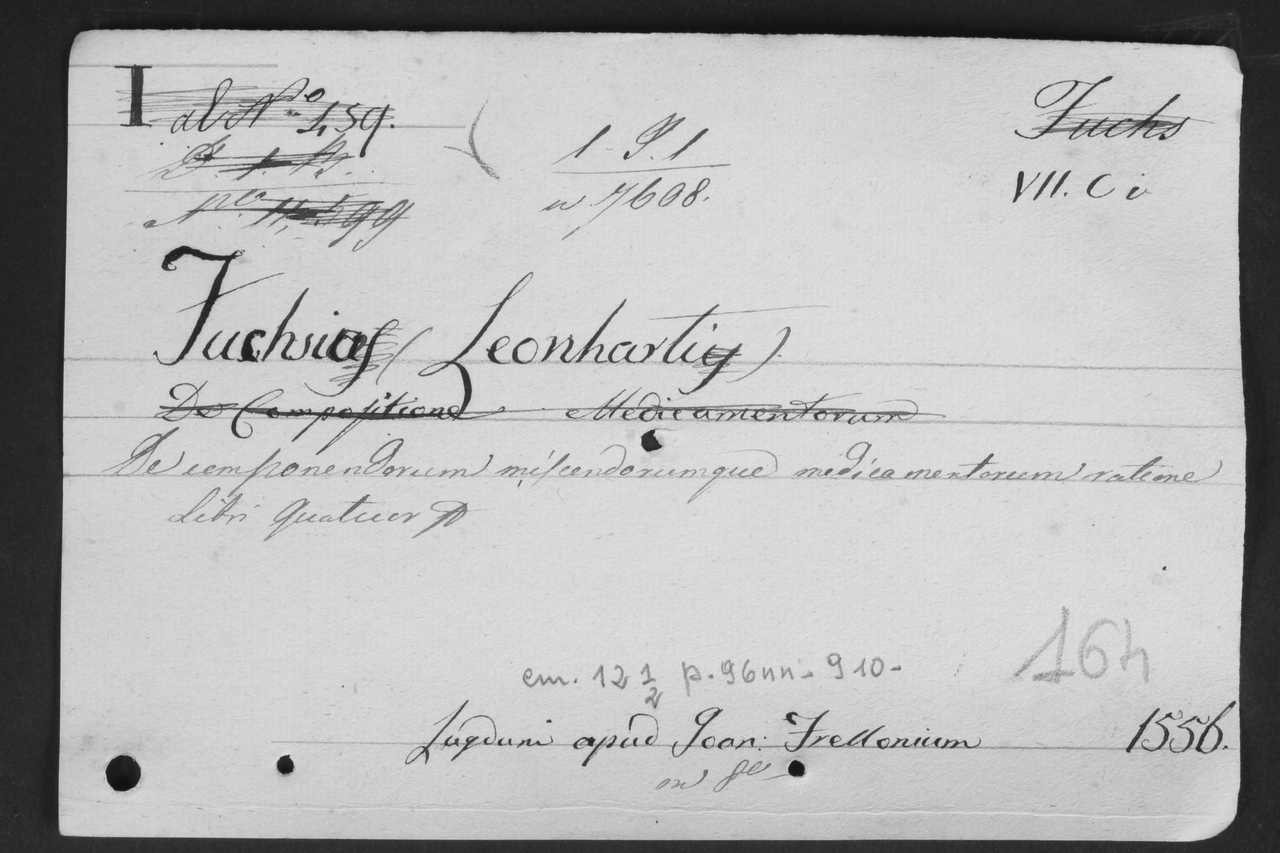 I
al Nº 1,59.
1 - P. 1
n 7608.
Fuchs
VII. C i
Fuchsius (Leonharti)
De Compositione Medicamentorum
De componendorum miscendorumque medicamentorum ratione
Libri Quatuor
164
cm. 12 1/2 p. 96nn - 910 -
Lugduni apud Joan: Frellonium 1556.
in 8º